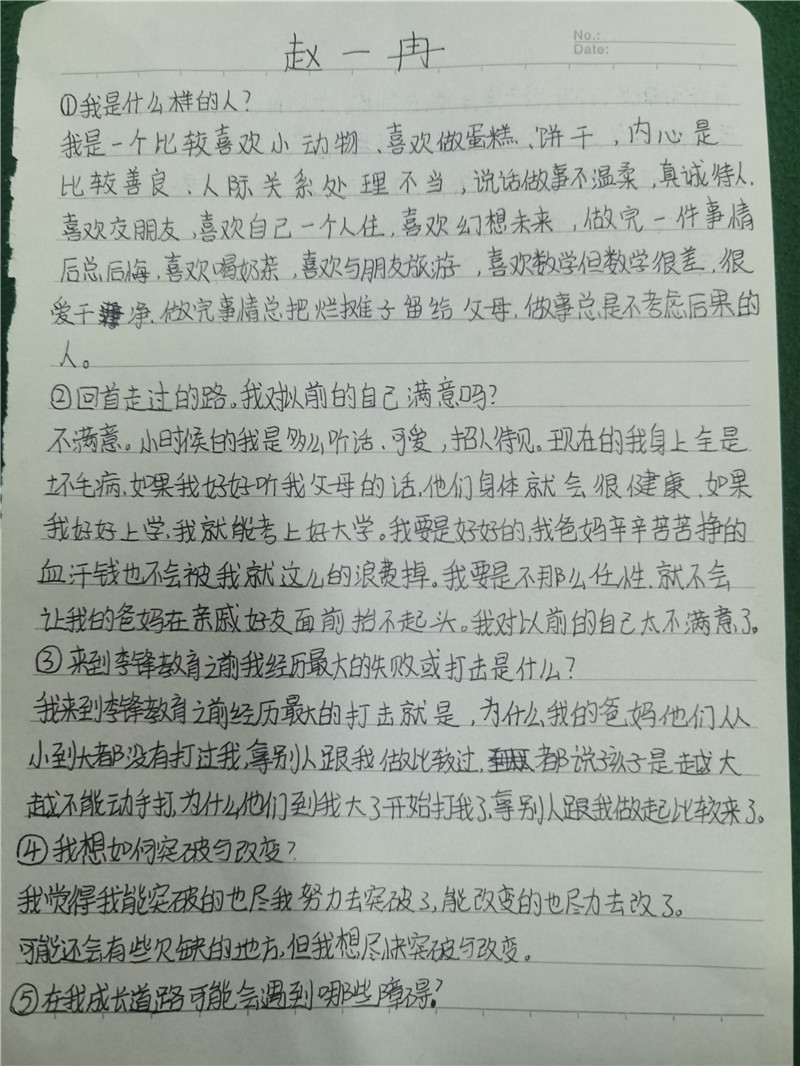 No.:
Date:
赵一冉
①我是什么样的人?
我是一个比较喜欢小动物、喜欢做蛋糕、饼干,内心是
比较善良、人际关系处理不当,说话做事不温柔,真诚待人.
喜欢交朋友,喜欢自己一个人住,喜欢幻想未来,做完一件事情
后总后悔,喜欢喝奶茶,喜欢与朋友旅游,喜欢数学但数学很差,很
爱干净.做完事情总把烂摊子留给父母,做事总是不考虑后果的
人。
②回首走过的路。我对以前的自己满意吗?
不满意。小时候的我是多么听话、可爱,招人待见。现在的我身上全是
坏毛病,如果我好好听我父母的话,他们身体就会很健康.如果
我好好上学,我就能考上好大学。我要是好好的,我爸妈辛辛苦苦挣的
血汗钱也不会被我就这么的浪费掉。我要是不那么任性.就不会
让我的爸妈在亲戚好友面前抬不起头。我对以前的自己太不满意了。
③来到李锋教育之前我经历最大的失败或打击是什么?
我来到李锋教育之前经历最大的打击就是,为什么我的爸妈他们从
小到大都没有打过我,拿别人跟我做比较过,都说孩子是越大
越不能动手打,为什么他们到我大了开始打我了,拿别人跟我做起比较来了。
④我想如何突破与改变?
我觉得我能突破的也尽我努力去突破了,能改变的也尽力去改了。
可能还会有些欠缺的地方,但我想尽快突破与改变。
⑤在我成长道路可能会遇到哪些障碍?